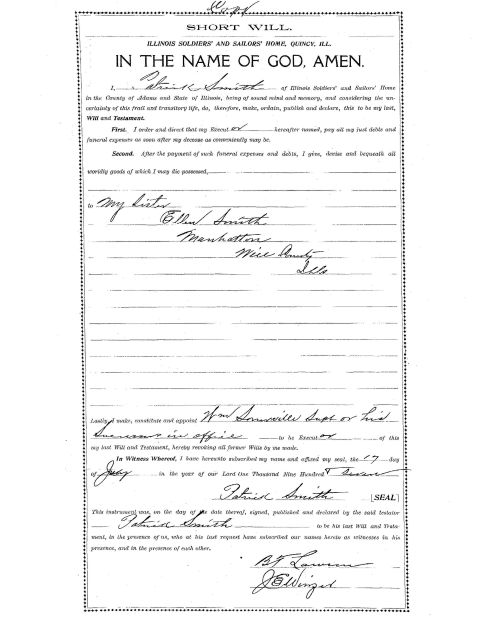 Copy
SHORT WILL.
ILLINOIS SOLDIERS' AND SAILORS' HOME, QUINCY, ILL.
IN THE NAME OF GOD, AMEN.
I, Patrick Smith of Illinois Soldiers' and Sailors' Home
in the County of Adams and State of Illinois, being of sound mind and memory, and considering the un-
certainty of this frail and transitory life, do, therefore, make, ordain, publish and declare, this to be my last,
Will and Testament.
First. I order and direct that my Execut or hereafter named, pay all my just debts and
funeral expenses as soon after my decease as conveniently may be.
Second. After the payment of such funeral expenses and debts, I give, devise and bequeath all
worldly goods of which I may die possessed,
to My Sister
Ellen Smith
Manhatton
Will County
Ills
Lastly, I make, constitute and appoint Wm Somerville Supt or his
Successor in office to be Execut or of this
my last Will and Testament, hereby revoking all former Wills by me made.
In Witness Whereof, I have hereunto subscribed my name and affixed my seal, the 17 day
of July in the year of our Lord One Thousand Nine Hundred & Seven
Patrick Smith [SEAL]
This instrument was, on the day of the date thereof, signed, published and declared by the said testator
Patrick Smith to be his last Will and Testa-
ment, in the presence of us, who at his last request have subscribed our names hereto as witnesses in his
presence, and in the presence of each other.
B F Lawson